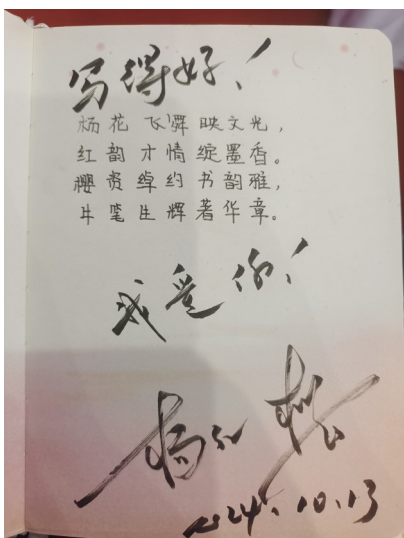 写得好!
杨花飞舞映文光,
红韵才情绽墨香。
樱贵绰约书韵雅,
生笔生辉著华章。
我爱你!
杨红樱
2024.10.13